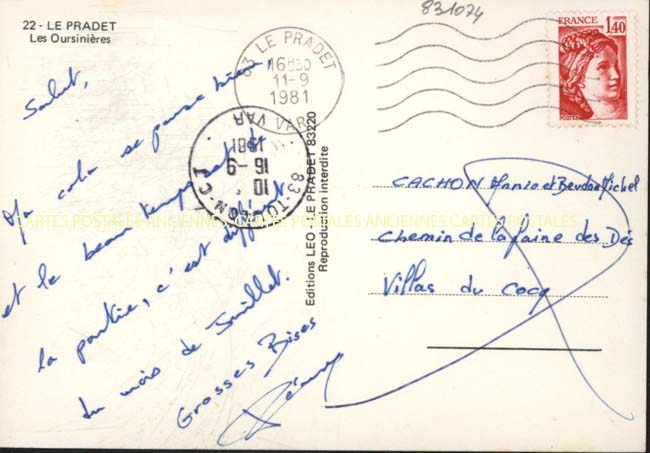 22 - LE PRADET
Les Oursinières
831074
FRANCE
1,40
POSTES
83 LE PRADET
16H30
11-9
1981
VAR
83-TOULON-C T
10
16-9
1981
VAR
Salut,
cela se passe bien,
et le beau temps est de
la partie, c'est différent
du mois de Juillet.
Grosses Bises
Editions LEO - LE PRADET 83220
Reproduction interdite
CACHON Annie et Michel
Chemin de la des Dés
Villas du Cocq
CARTES POSTALES ANCIENNES CARTES POSTALES ANCIENNES CARTES POSTALES